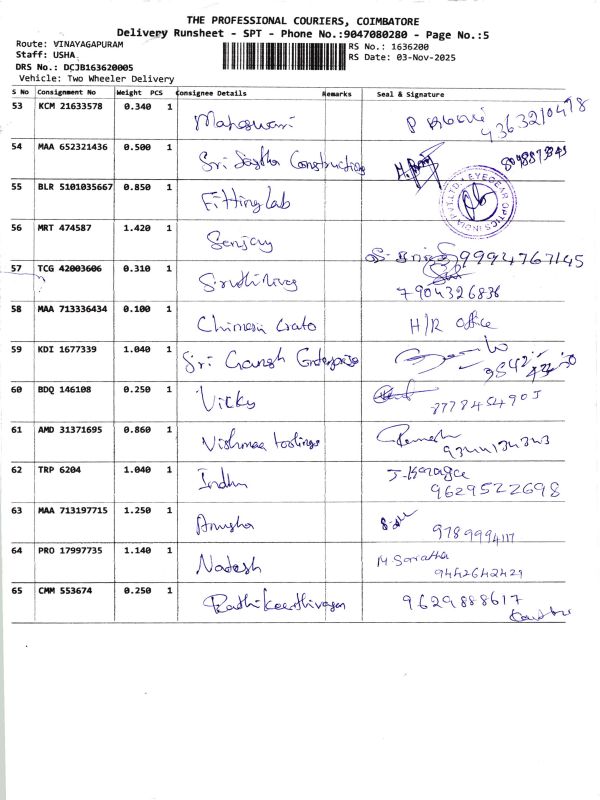 THE PROFESSIONAL COURIERS, COIMBATORE
Delivery Runsheet - SPT - Phone No.:9047080280 - Page No.:5
Route: VINAYAGAPURAM
Staff: USHA
DRS No.: DCJB163620005
Vehicle: Two Wheeler Delivery
RS No.: 1636200
RS Date: 03-Nov-2025
S No Consignment No Weight PCS Consignee Details Remarks Seal & Signature
53 KCM 21633578 0.340 1 Maheswari
54 MAA 652321436 0.500 1 Sri Sastha Constructions
55 BLR 5101035667 0.850 1 Fitting lab EYEGEAR OPTICS INDIA PVT LTD
56 MRT 474587 1.420 1 Sanjay 9994767145
57 TCG 42003606 0.310 1 7904326836
58 MAA 713336434 0.100 1 H/R office
59 KDI 1677339 1.040 1 Sri Ganesh Enterprise
60 BDQ 146108 0.250 1 Vicky
61 AMD 31371695 0.860 1 Vishmaa toolings Ramesh
62 TRP 6204 1.040 1 Indhu 9629522698
63 MAA 713197715 1.250 1 Anusha
64 PRO 17997735 1.140 1 9442642429
65 CMM 553674 0.250 1 9629888617